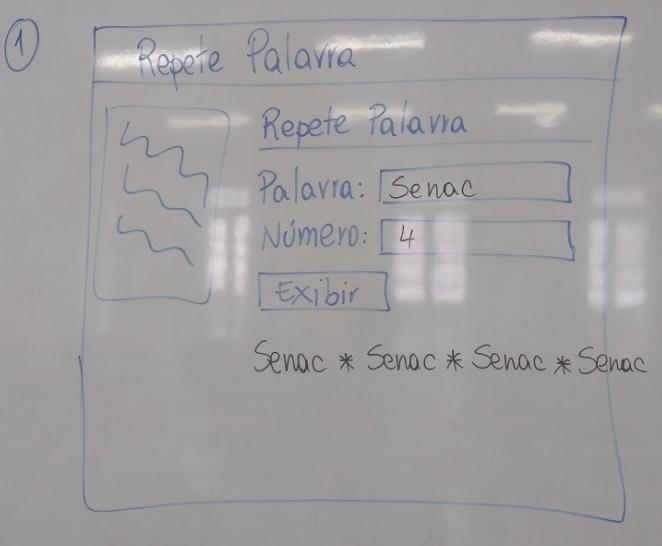 1
Repete Palavra
Repete Palavra
Palavra: Senac
Número: 4
Exibir
Senac * Senac * Senac * Senac